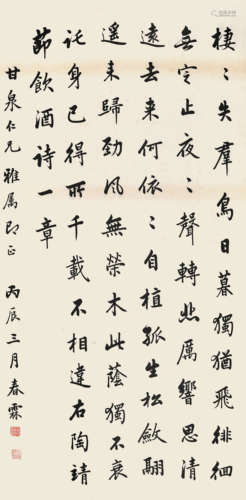 棲〻失群鳥日暮獨猶飛徘徊
無定止夜〻聲轉悲厲響思清
遠去來何依〻自植孤生松斂翮
遙來歸勁風無榮木此蔭獨不衰
託身已得所千載不相違右陶靖
節飲酒詩一章
甘泉仁兄雅属即正 丙辰三月春霖